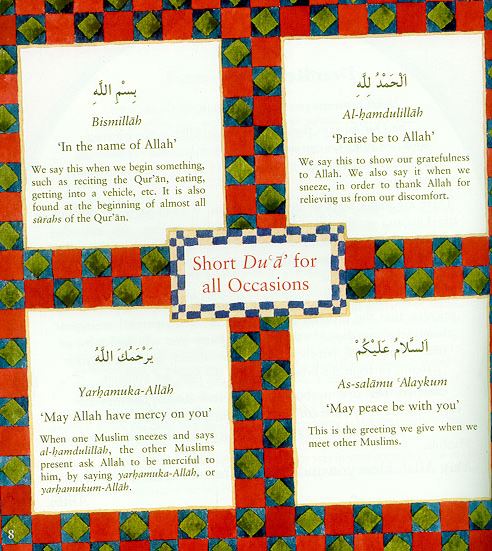 بِسْمِ اللَّهِ
Bismillāh
‘In the name of Allah’
We say this when we begin something,
such as reciting the Qur’ān, eating,
getting into a vehicle, etc. It is also
found at the beginning of almost all
sūrahs of the Qur’ān.
اَلْحَمْدُ لِلَّهِ
Al-ḥamdulillāh
‘Praise be to Allah’
We say this to show our gratefulness
to Allah. We also say it when we
sneeze, in order to thank Allah for
relieving us from our discomfort.
Short Duʿā’ for
all Occasions
يَرْحَمُكَ اللَّهُ
Yarḥamuka-Allāh
‘May Allah have mercy on you’
When one Muslim sneezes and says
al-ḥamdulillāh, the other Muslims
present ask Allah to be merciful to
him, by saying yarḥamuka-Allāh, or
yarḥamukum-Allāh.
اَلسَّلَامُ عَلَيْكُمْ
As-salāmu ʿAlaykum
‘May peace be with you’
This is the greeting we give when we
meet other Muslims.
8